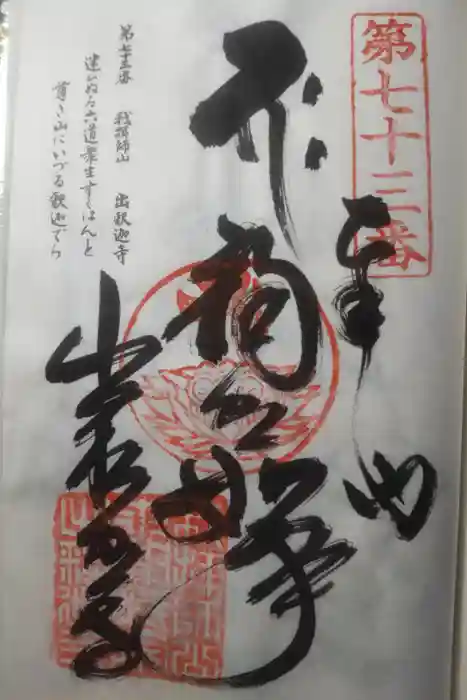 第七十三番
奉納
釈迦如来
第七十三番 我拝師山 出釈迦寺
迷ひぬる六道衆生すくはんと
尊き山にいづる釈迦でら
出釈迦寺